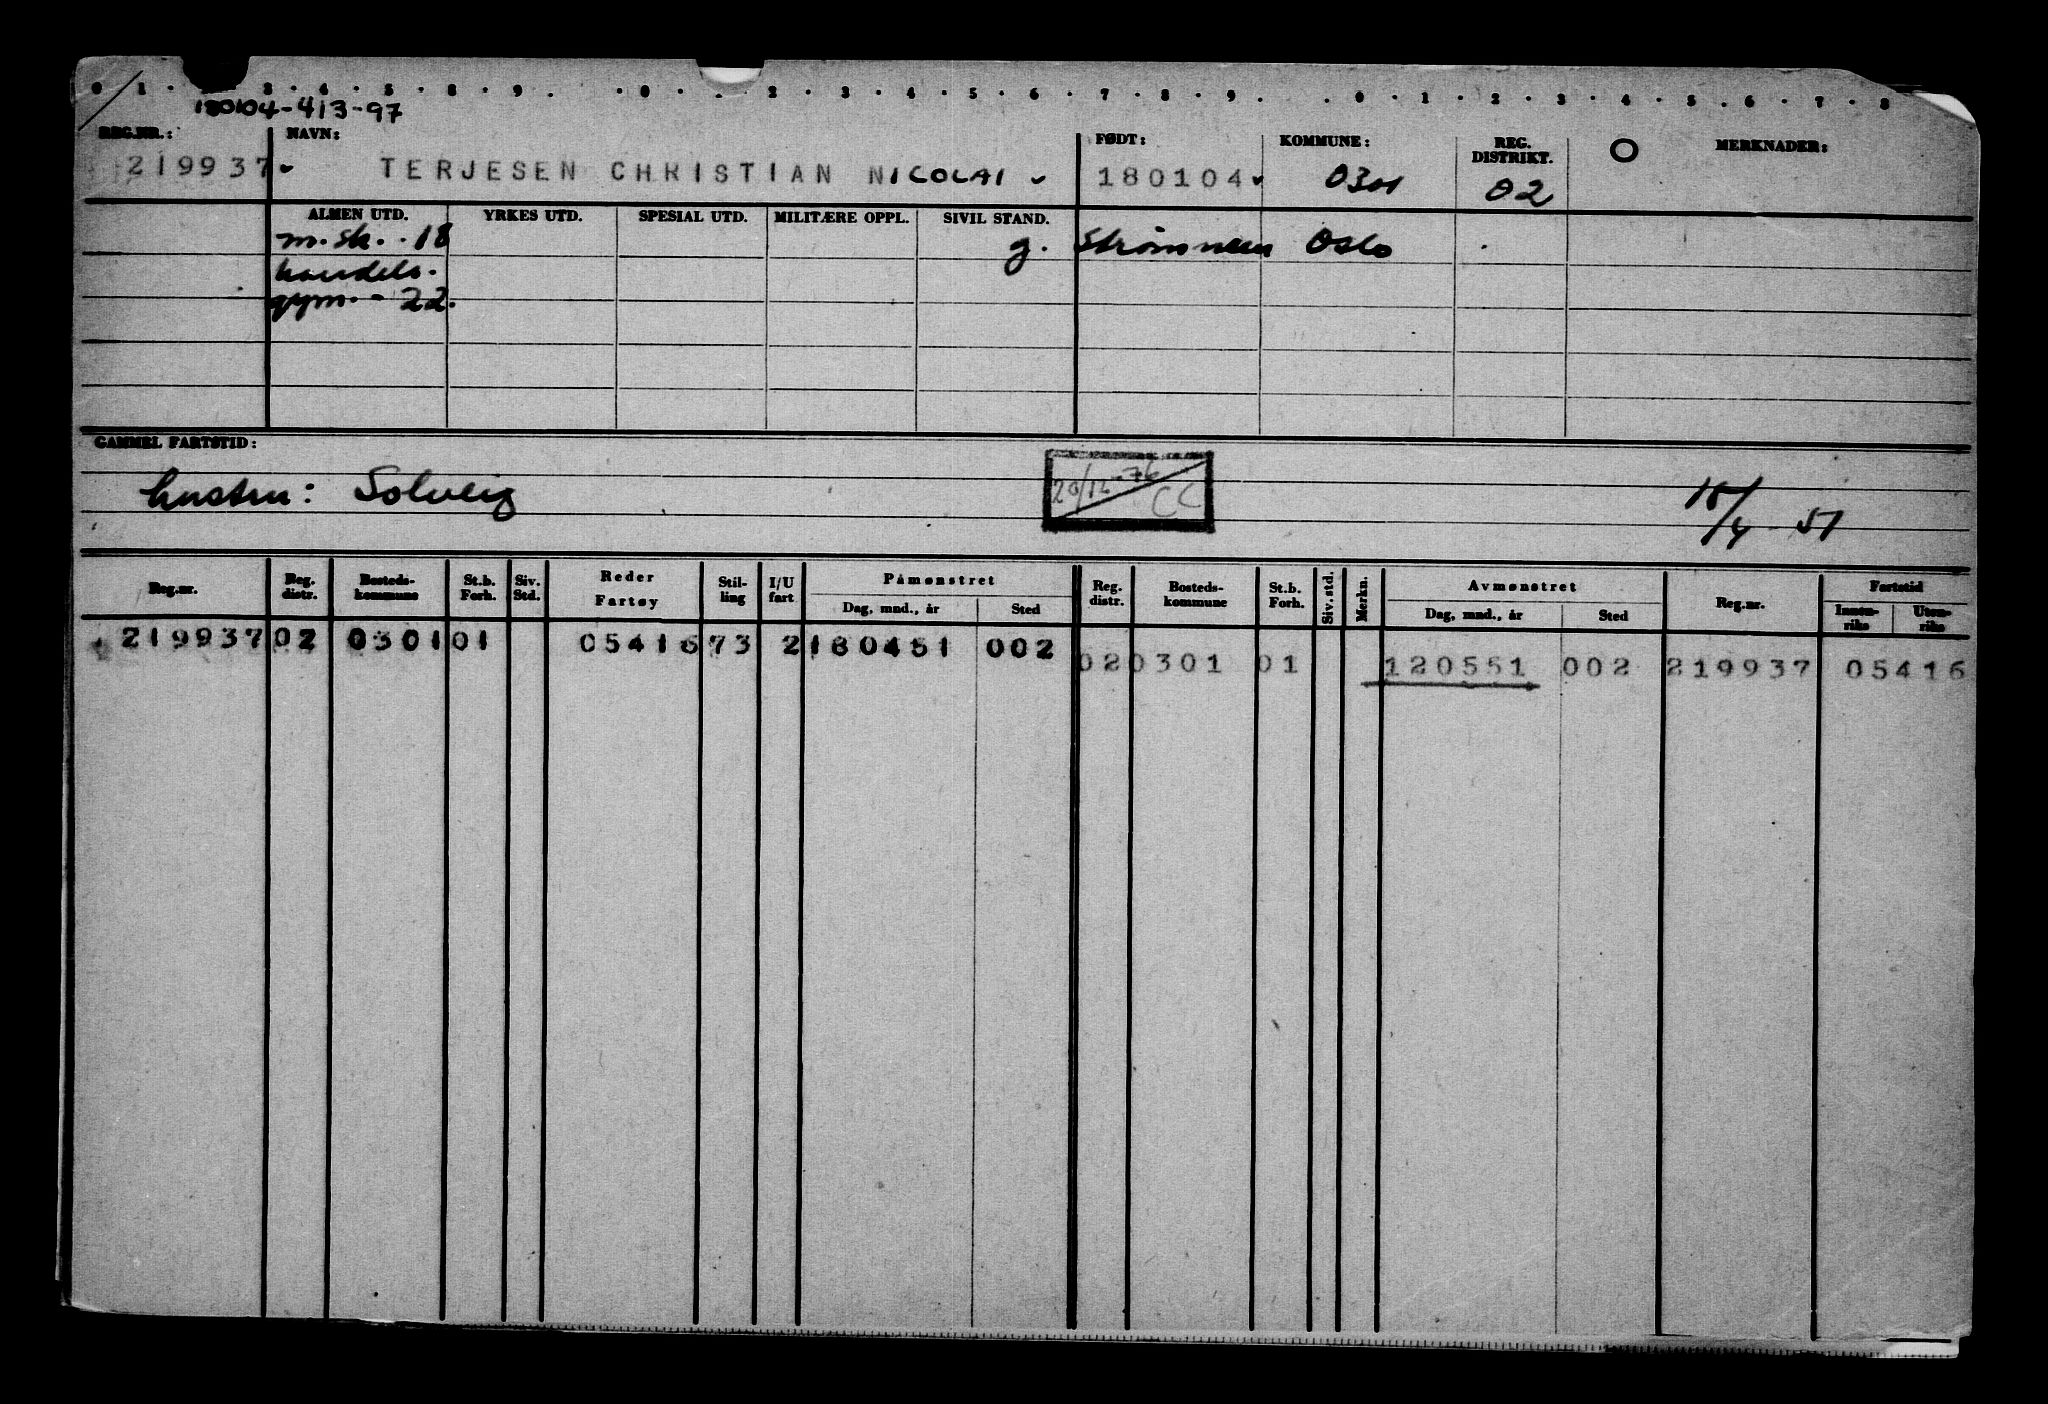 0 1 3 4 5 8 9 0 2 3 4 5 6 7 8 9 0 1 2 3 4 5 6 7 8
180104-413-97
REG.NR.: NAVN: FØDT: KOMMUNE: REG. DISTRIKT. O MERKNADER:
219937 TERJESEN CHRISTIAN NICOLAI 180104 0301 02
ALMEN UTD. YRKES UTD. SPESIAL UTD. MILITÆRE OPPL. SIVIL STAND.
m.sk. - 18 g. Strømmen Oslo
handels.
gym. - 22.
GAMMEL FARTSTID:
hustru: Solveig 20/12-76 CC 18/4-51
Reg.nr. Reg. distr. Bosteds-kommune St.b. Forh. Siv. Std. Reder Fartøy Stil-ling I/U fart Påmønstret Dag, mnd., år Sted Reg. distr. Bosteds-kommune St.b. Forh. Siv. std. Merkn. Avmønstret Dag, mnd., år Sted Reg.nr. Fartstid Innen-riks Uten-riks
219937 02 0301 01 05416 73 2 180451 002
02 0301 01 120551 002 219937 05416